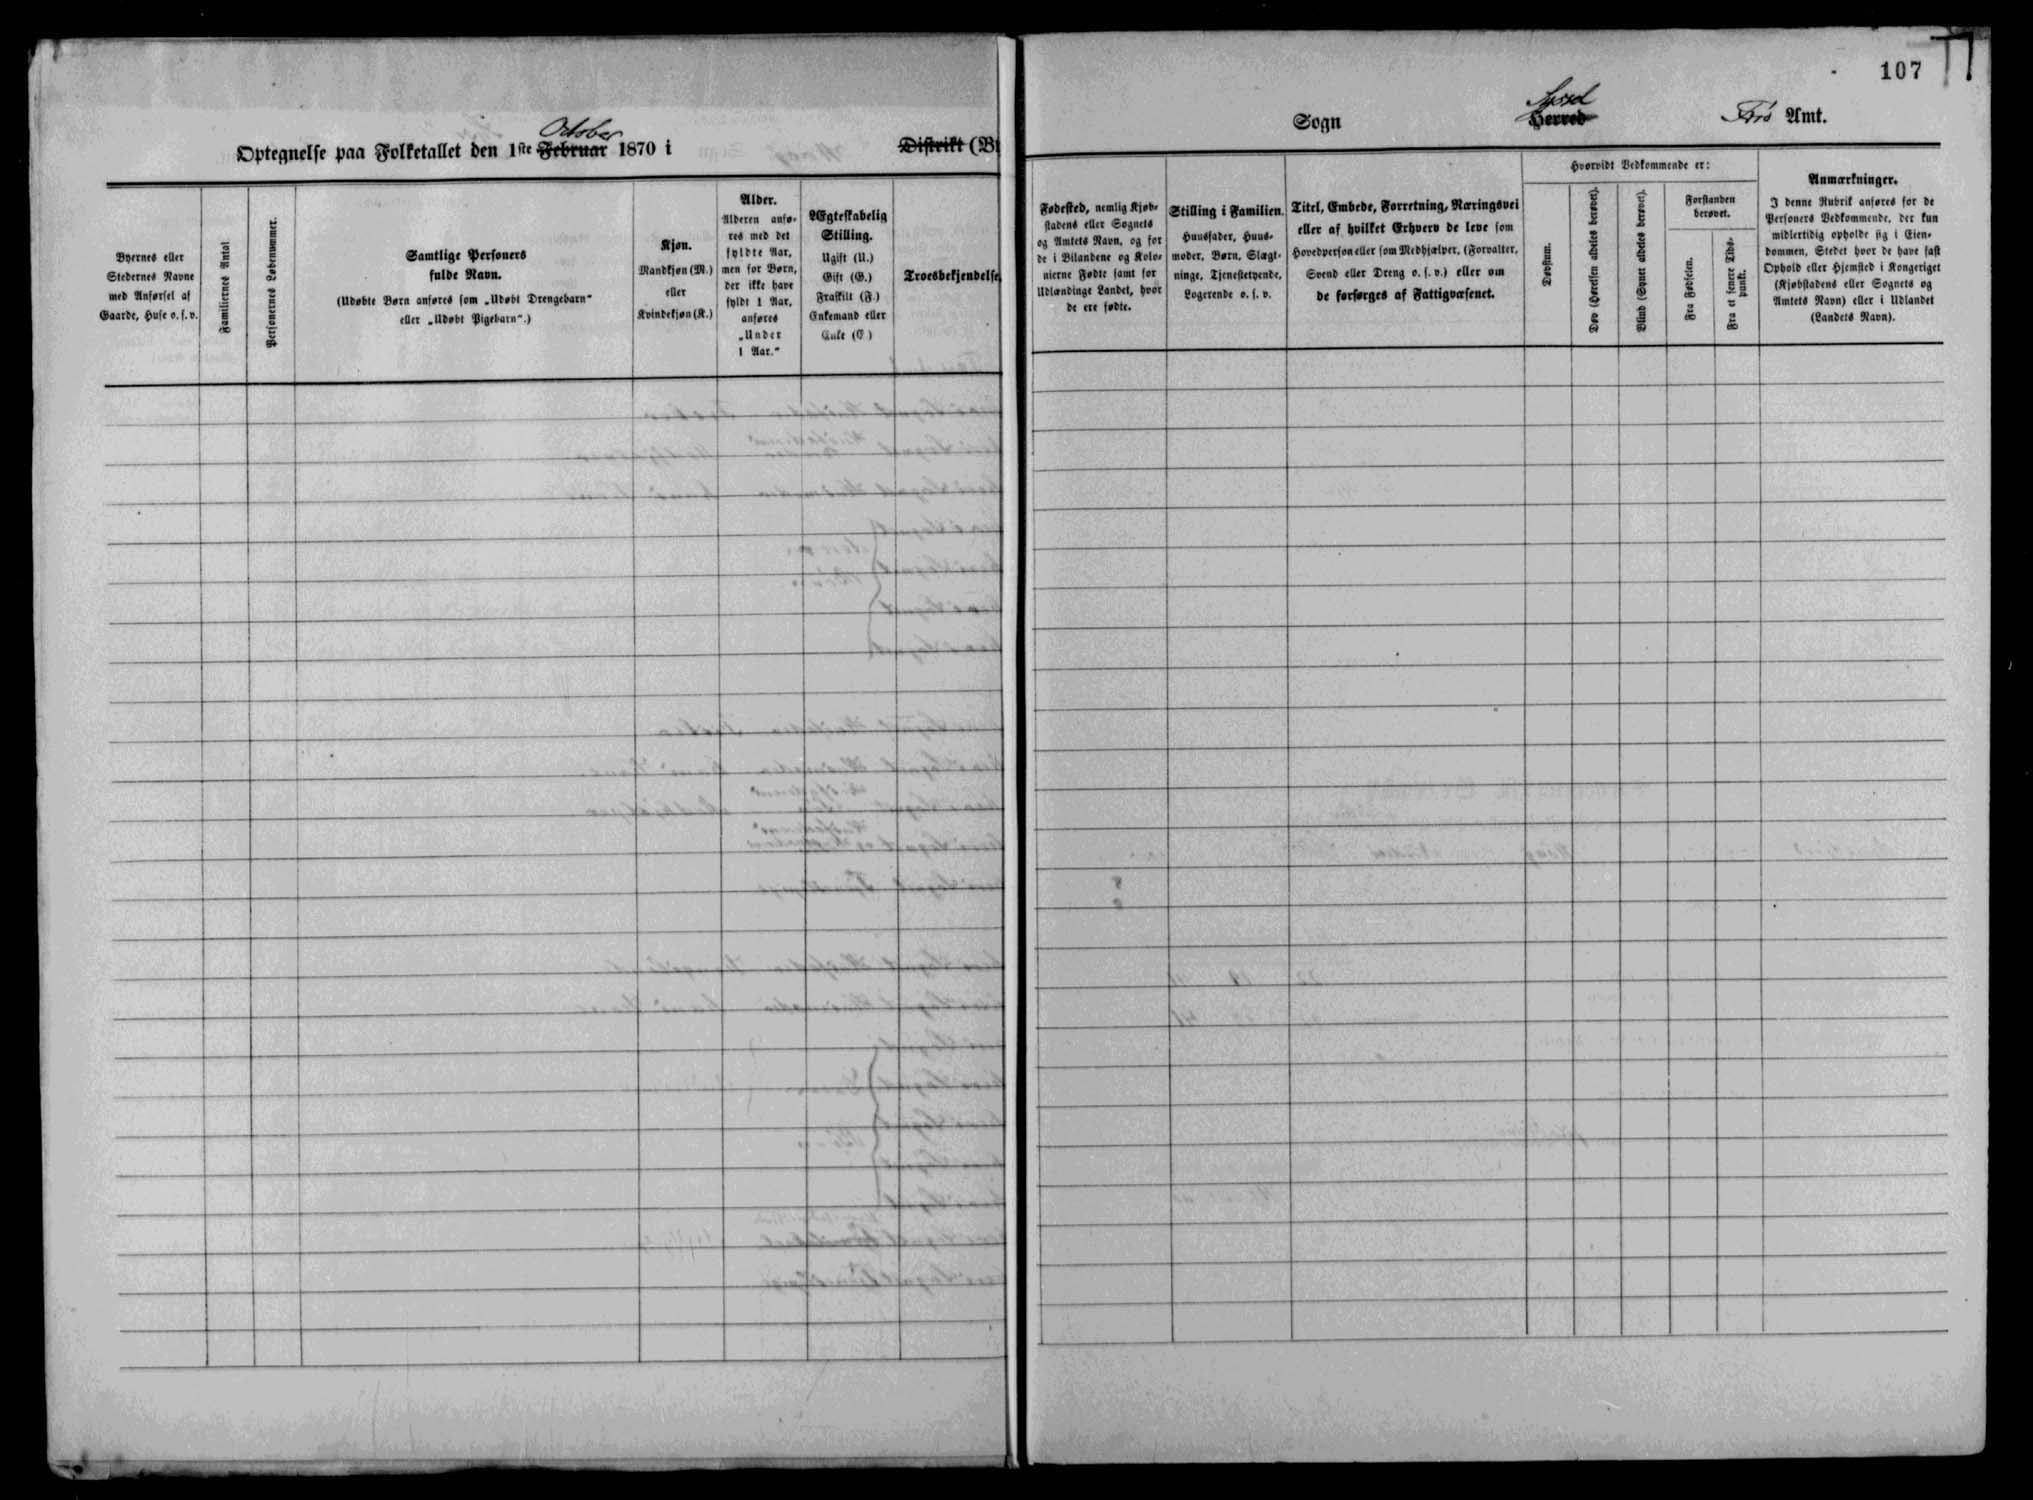 107
October
Optegnelse paa Folketallet den 1ste Februar 1870 i Distrikt (B
Syssel
Sogn Herred Amt.
Byernes eller
Stedernes Navne
med Anførsel af
Gaarde, Huse o. s. v.
Familiernes Antal
Personernes Løbenummer.
Samtlige Personers
fulde Navn.
(Udøbte Børn anføres som „Udøbt Drengebarn“
eller „Udøbt Pigebarn“.)
Kjøn.
Mandkjøn (M.)
eller
Kvindekjøn (K.)
Alder.
Alderen anfø-
res med det
fyldte Aar,
men for Børn,
der ikke have
fyldt 1 Aar,
anføres
„Under
1 Aar.“
Ægteskabelig
Stilling.
Ugift (U.)
Gift (G.)
Fraskilt (F.)
Enkemand eller
Enke (E.)
Troesbekjendelse
Fødested, nemlig Kjøb-
stadens eller Sognets
og Amtets Navn, og for
de i Bilandene og Kolo-
nierne Fødte samt for
Udlændinge Landet, hvor
de ere fødte.
Stilling i Familien.
Huusfader, Huus-
moder, Børn, Slægt-
ninge, Tjenestetyende,
Logerende o. s. v.
Titel, Embede, Forretning, Næringsvei
eller af hvilket Erhverv de leve som
Hovedperson eller som Medhjælper, (Forvalter,
Svend eller Dreng o. s. v.) eller om
de forsørges af Fattigvæsenet.
Hvorvidt Vedkommende er:
Døvstum.
Døv (Hørelsen aldeles berøvet).
Blind (Synet aldeles berøvet).
Forstanden
berøvet.
Fra Fødselen.
Fra et senere Tids-
punkt.
Anmærkninger.
I denne Rubrik anføres for de
Personers Vedkommende, der kun
midlertidig opholde sig i Eien-
dommen, Stedet hvor de have fast
Ophold eller Hjemsted i Kongeriget
(Kjøbstadens eller Sognets og
Amtets Navn) eller i Udlandet
(Landets Navn).